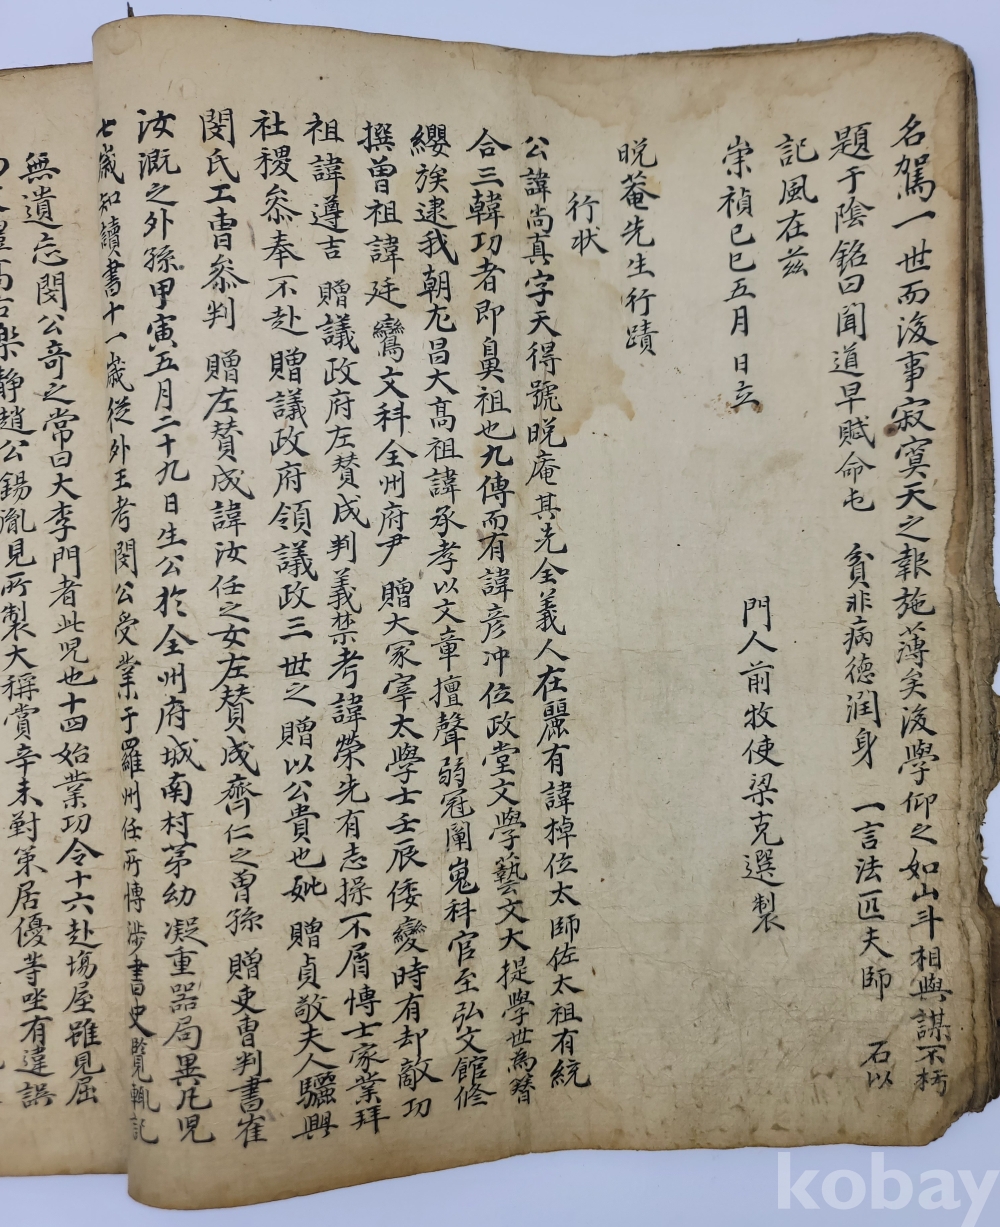 名駕一世而後事寂寞天之報施薄矣後學仰之如山斗相與謀不朽
題于陰銘曰聞道早賦命屯 貧非病德潤身 一言法匹夫師 石以
記風在玆
崇禎己巳五月 日立 門人前牧使梁克選製
晚菴先生行蹟
行狀
公諱尚真字天得號晚庵其先全義人在麗有諱棹位太師佐太祖有統
合三韓功者即鼻祖也九傳而有諱彦冲位政堂文學藝文大提學世為簪
纓族逮我朝尤昌大高祖諱承孝以文章擅聲弱冠闡嵬科官至弘文館修
撰曾祖諱廷鸞文科全州府尹 贈大冢宰太學士壬辰倭變時有却敵功
祖諱遵吉 贈議政府左賛成判義禁考諱榮先有志操不屑博士家業拜
社稷叅奉不赴 贈議政府領議政三世之 贈以公貴也妣 贈貞敬夫人驪興
閔氏工曺叅判 贈左賛成諱汝任之女左賛成齊仁之曾孫 贈吏曺判書崔
汝漑之外孫甲寅五月二十九日生公於全州府城南村茅幼凝重器局異凡兒
七歲知讀書十一歲從外王考閔公受業于羅州任所博涉書史覽輒記
無遺忘閔公奇之常曰大李門者此兒也十四始業功令十六赴塲屋雖見屈
樂靜趙公錫胤見所製大稱賞辛未對策居優等坐有違誤